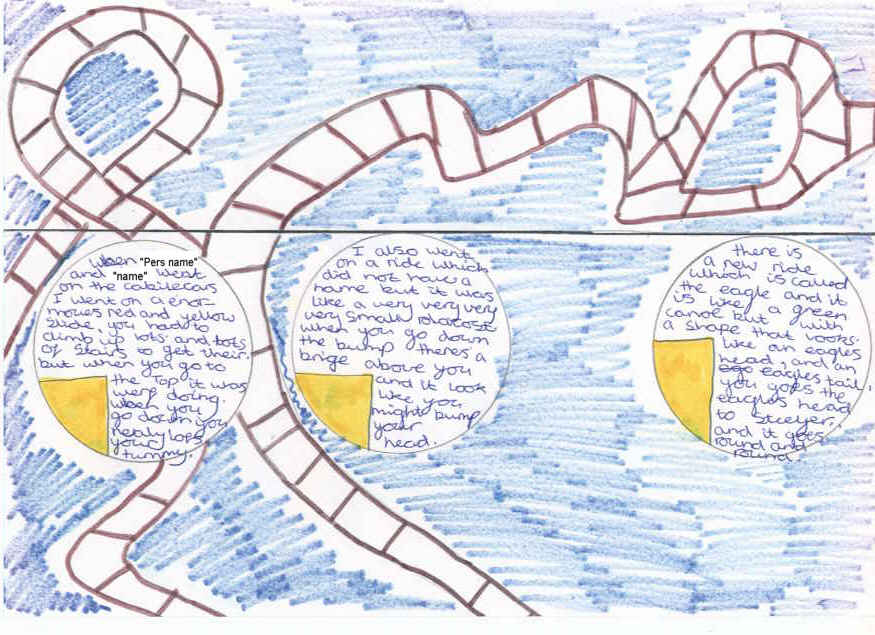 when "Pers name"
and "name" went
on the cabilecars
I went on a enor-
mouse red and yellow
slide, you had to
climb up lots and lots
of stairs to get their.
but when you go to
the top it was
werp doing.
when you
go down you
nealy lose
your
tummy.
I also went
on a ride which
did not have a
name but it was
like a very very very
very small
when you go down
the bump theres a
brige above you
and it look
like you
might bump
your
head.
there is
a new ride
which is called
the eagle and it
is like a green
canoe but with
a shape that looks
like an eagles
head, and an
eagles tail,
you
eagles head
to steeyer.
and it goes
round and
round.